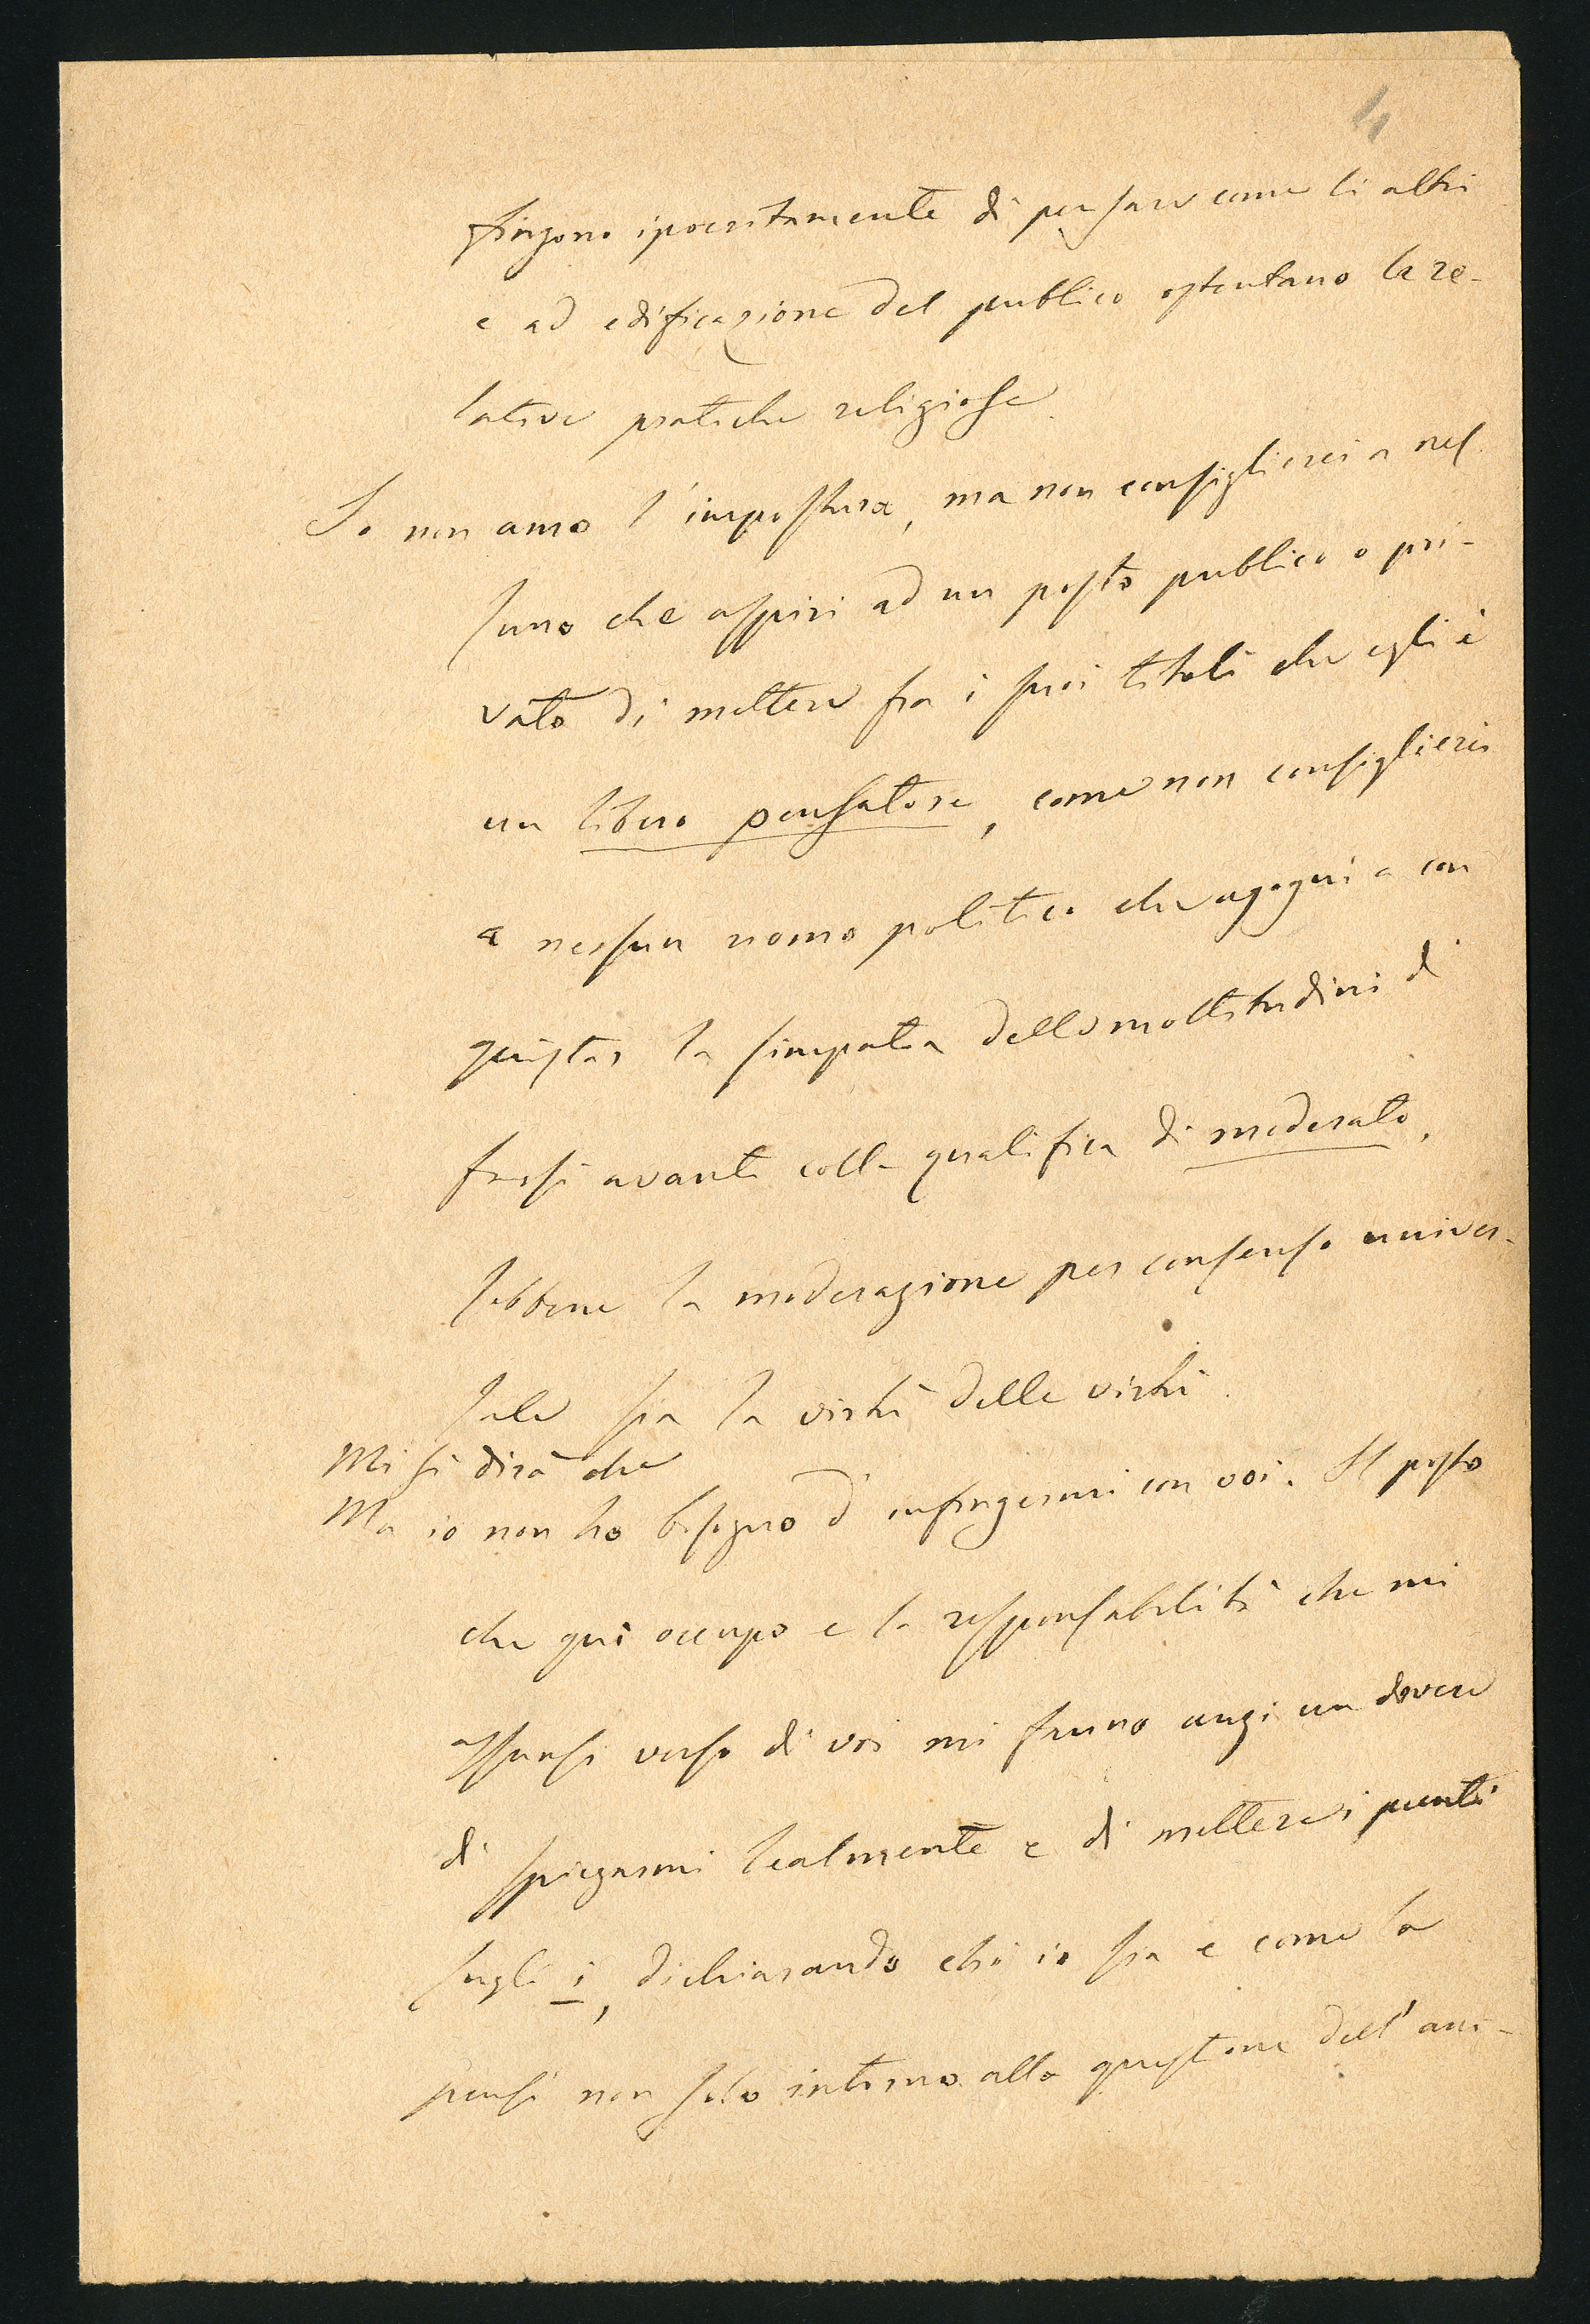 4
fingono ipocritamente di pensare come li altri
e ad edificazione del publico ostentano le re-
lative pratiche religiose.
Io non amo l'impostura, ma non consiglierei a nes
suno che aspiri ad un posto publico o pri-
vato di mettere fra i suoi titoli che egli è
un libero pensatore, come non consiglierei
a nessun uomo politico che agogni a con
quistar la simpatia delle moltitudini di
farsi avanti colla qualifica di moderato,
sebbene la moderazione per consenso univer-
sale sia la virtù delle virtù.
Mi si dirà che
Ma io non ho bisogno d'infingermi con voi. Il posto
che qui occupo e la responsabilità che mi
assunsi verso di voi mi fanno anzi un dovere
di spiegarmi lealmente e di mettere i punti
sugli i, dichiarando chi io sia e come la
pensi non solo intorno alla questione dell'ani-